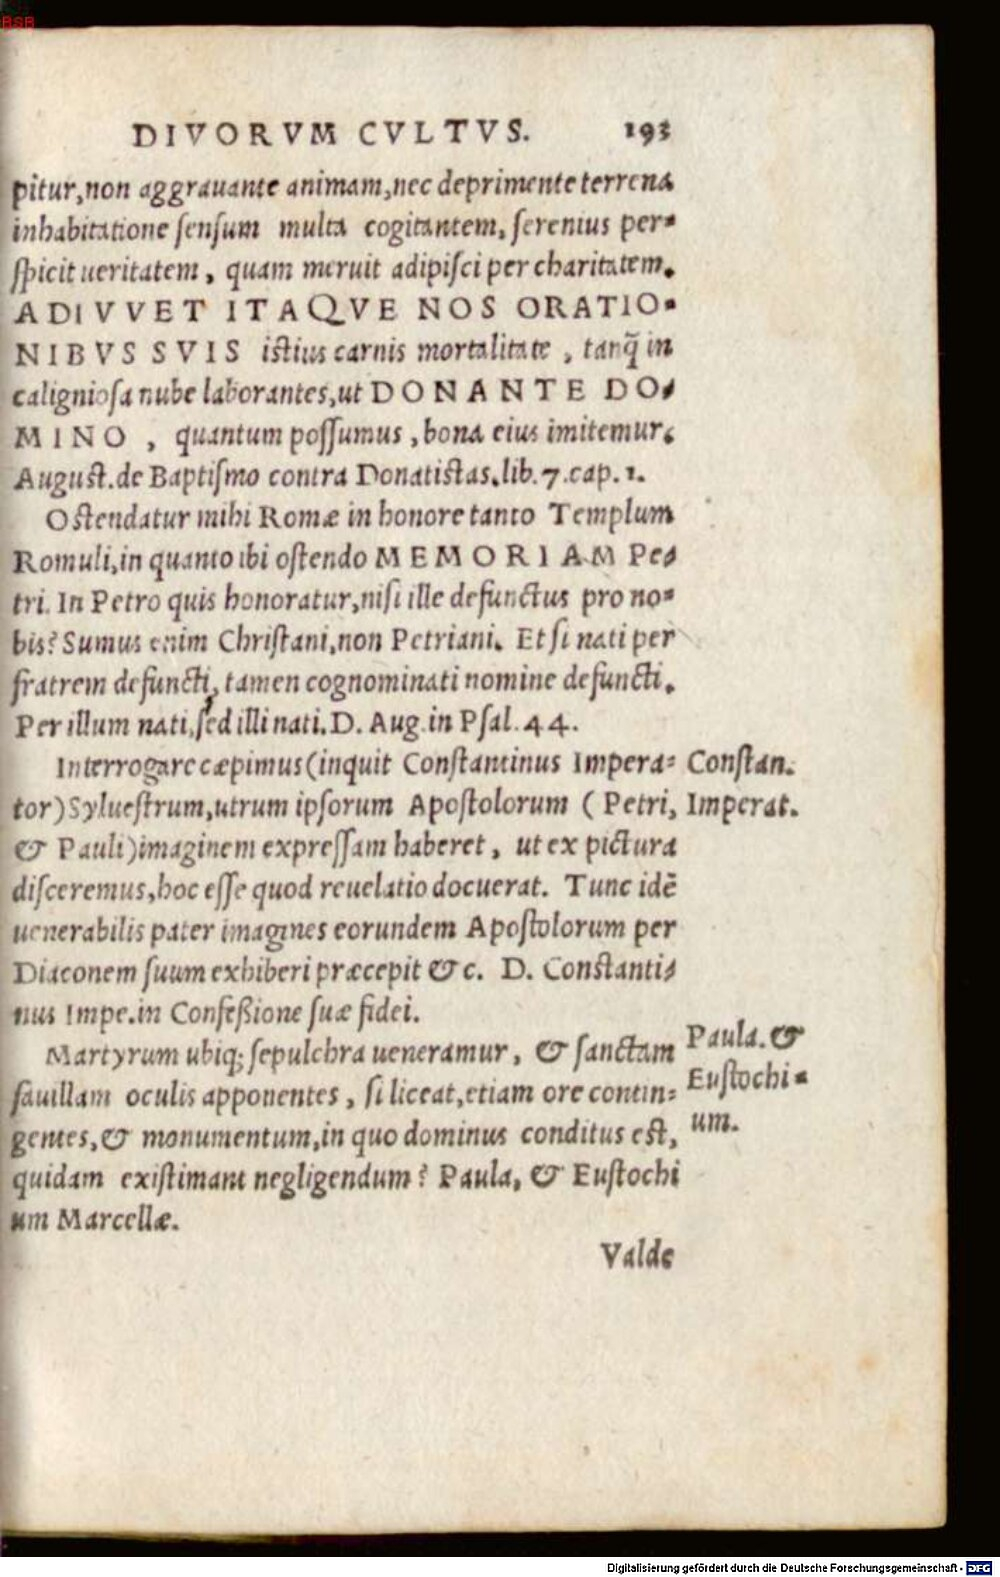 BSB
DIVORVM CVLTVS. 193
pitur, non aggrauante animam, nec deprimente terrena
inhabitatione ſenſum multa cogitantem, ſerenius per-
ſpicit ueritatem, quam meruit adipiſci per charitatem.
ADIVVET ITAQVE NOS ORATIO-
NIBVS SVIS istius carnis mortalitate, tanq̃ in
caligniosa nube laborantes, ut DONANTE DO-
MINO, quantum poſſumus, bona eius imitemur.
Auguſt. de Baptiſmo contra Donatistas. lib. 7. cap. 1.
Ostendatur mihi Romæ in honore tanto Templum
Romuli, in quanto ibi oſtendo MEMORIAM Pe-
tri. In Petro quis honoratur, niſi ille defunctus pro no-
bis? Sumus enim Chriſtani, non Petriani. Et ſi nati per
fratrem defuncti, tamen cognominati nomine defuncti.
Per illum nati, ſed illi nati. D. Aug. in Pſal. 44.
Interrogare cæpimus (inquit Conſtantinus Impera-
tor) Sylueſtrum, utrum ipſorum Apoſtolorum (Petri,
& Pauli) imaginem expreſſam haberet, ut ex pictura
diſceremus, hoc eſſe quod reuelatio docuerat. Tunc idẽ
uenerabilis pater imagines eorundem Apoſtolorum per
Diaconem ſuum exhiberi præcepit &c. D. Constanti-
nus Impe. in Confeßione ſuæ fidei.
Conſtan.
Imperat.
Martyrum ubiq; ſepulchra ueneramur, & ſanctam
fauillam oculis apponentes, ſi liceat, etiam ore contin-
gentes, & monumentum, in quo dominus conditus eſt,
quidam exiſtimant negligendum? Paula, & Euſtochi
um Marcellæ.
Paula. &
Euſtochi-
um.
Valde
Digitalisierung gefördert durch die Deutsche Forschungsgemeinschaft - DFG